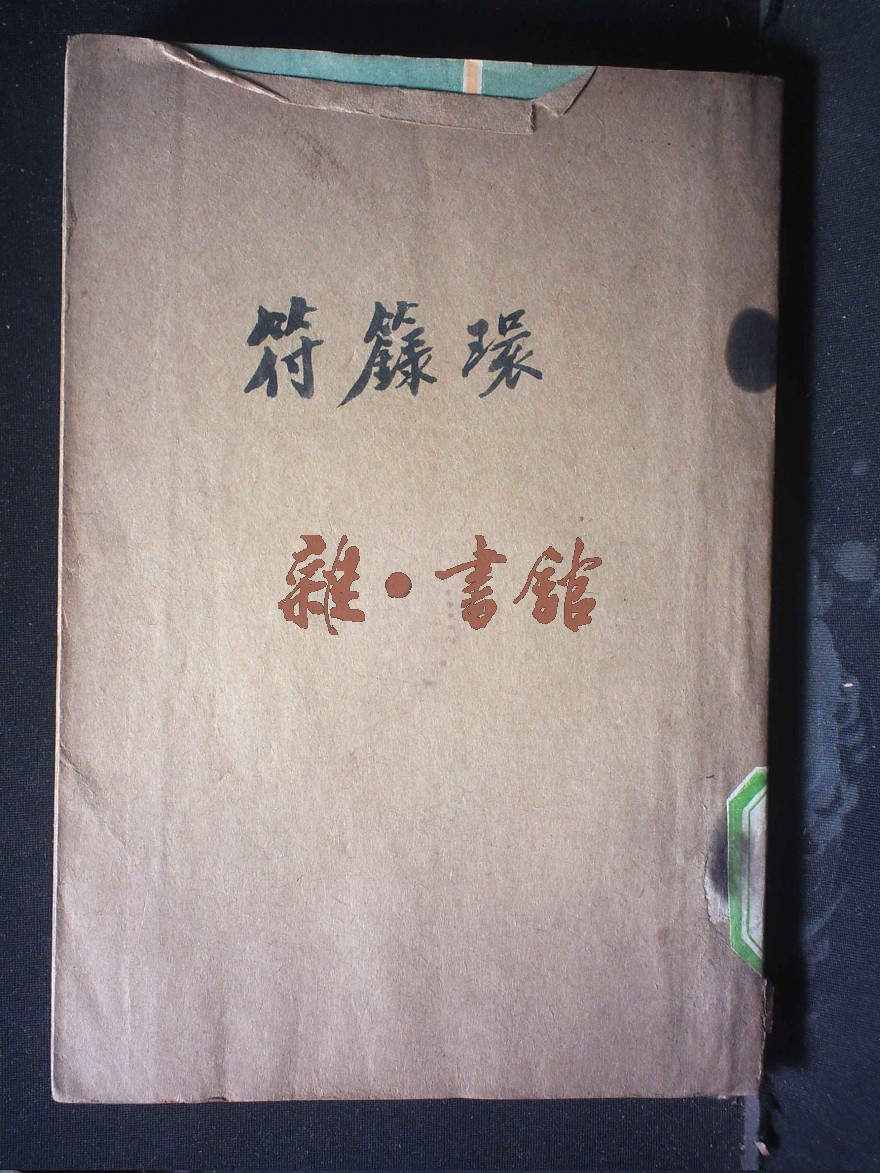 符籙環
雜·書館